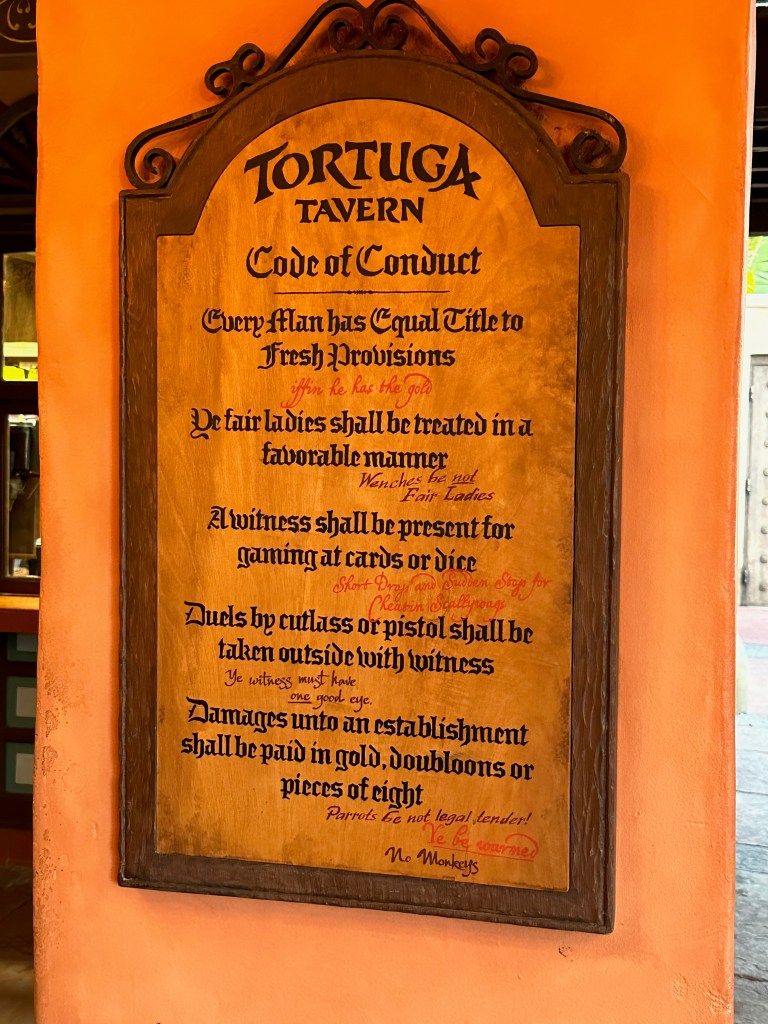 TORTUGA
TAVERN
Code of Conduct
Every Man has Equal Title to
Fresh Provisions
iffin he has the gold
Ye fair ladies shall be treated in a
favorable manner
Wenches be not
Fair Ladies
A witness shall be present for
gaming at cards or dice
Short Drop and Sudden Stop for
Cheatin Scallywags
Duels by cutlass or pistol shall be
taken outside with witness
Ye witness must have
one good eye.
Damages unto an establishment
shall be paid in gold, doubloons or
pieces of eight
Parrots be not legal tender!
Ye be warned
No Monkeys